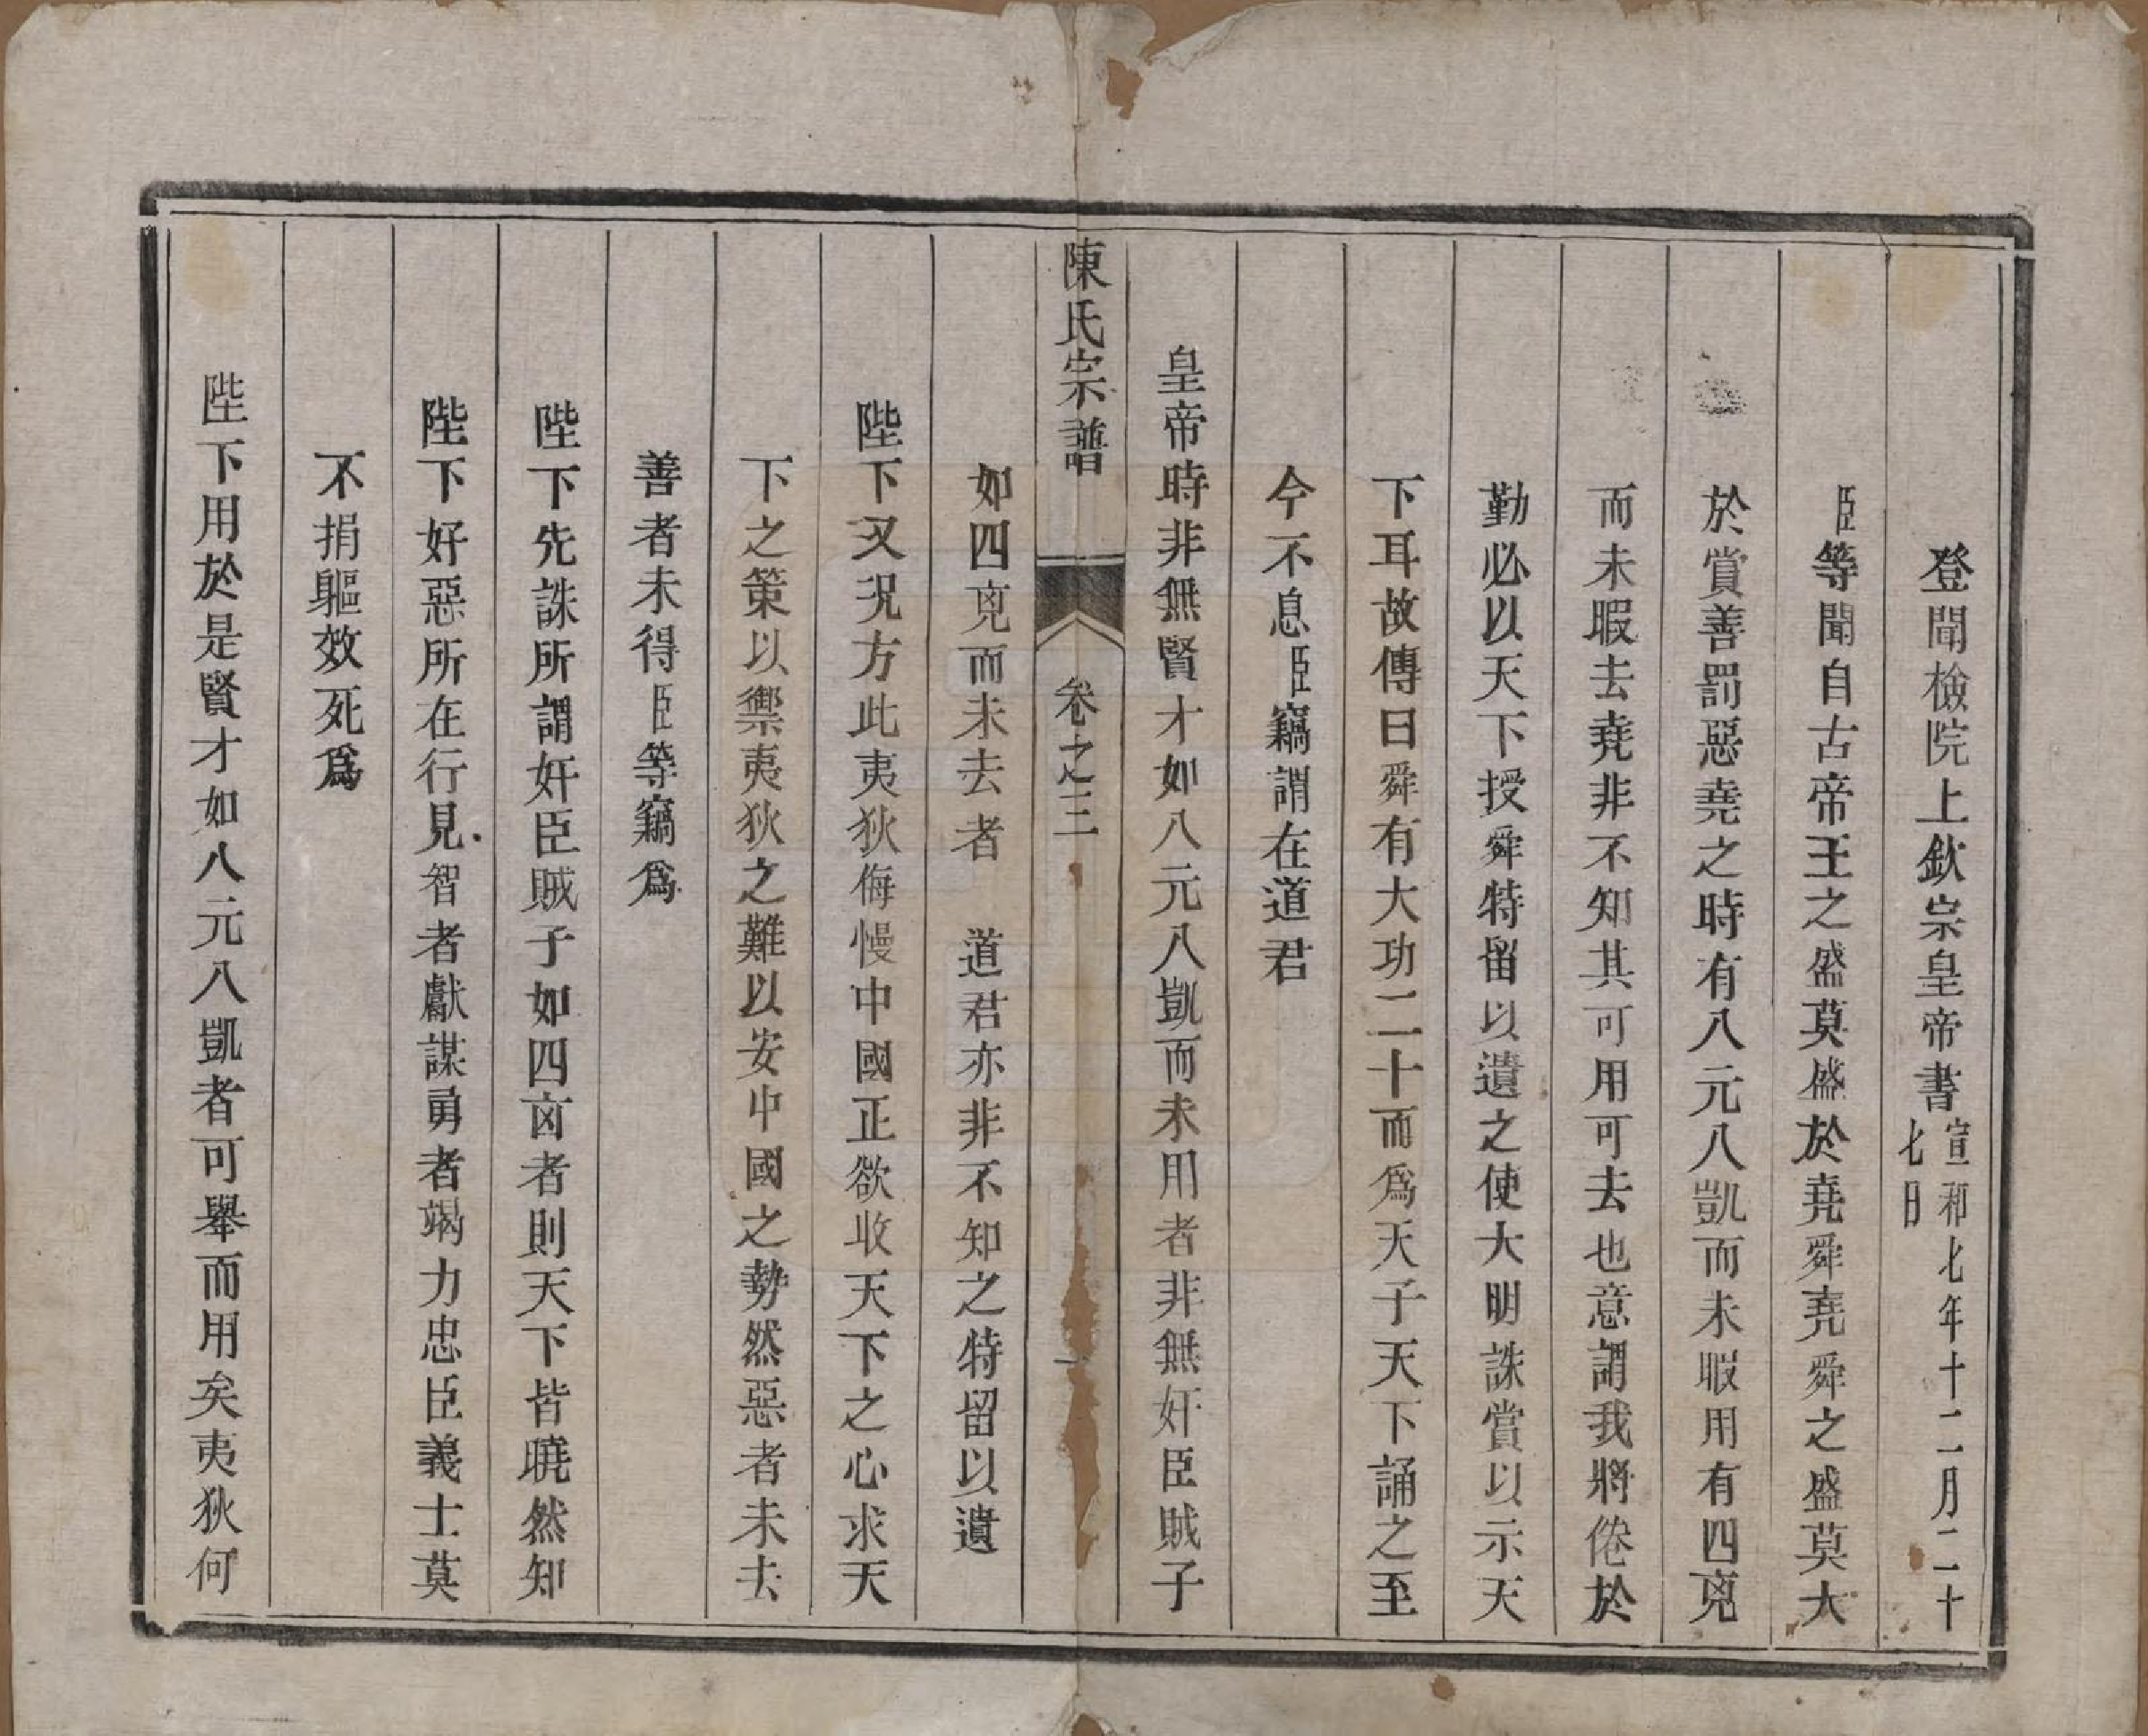 登聞檢院上欽宗皇帝書宣和七年十二月二十七日
臣等聞自古帝王之盛莫盛於堯舜堯舜之盛莫大
於賞善罰惡堯之時有八元八凱而未暇用有四兇
而未暇去堯非不知其可用可去也意謂我將倦於
勤必以天下授舜特留以遺之使大明誅賞以示天
下耳故傳曰舜有大功二十而爲天子天下誦之至
今不息臣竊謂在道君
皇帝時非無賢才如八元八凱而未用者非無奸臣賊子
陳氏宗譜 卷之三 一
如四兇而未去者 道君亦非不知之特留以遺
陛下又況方此夷狄侮慢中國正欲收天下之心求天
下之策以禦夷狄之難以安中國之勢然惡者未去
善者未得臣等竊爲
陛下先誅所謂奸臣賊子如四凶者則天下皆曉然知
陛下好惡所在行見智者獻謀勇者竭力忠臣義士莫
不捐軀效死爲
陛下用於是賢才如八元八凱者可舉而用矣夷狄何